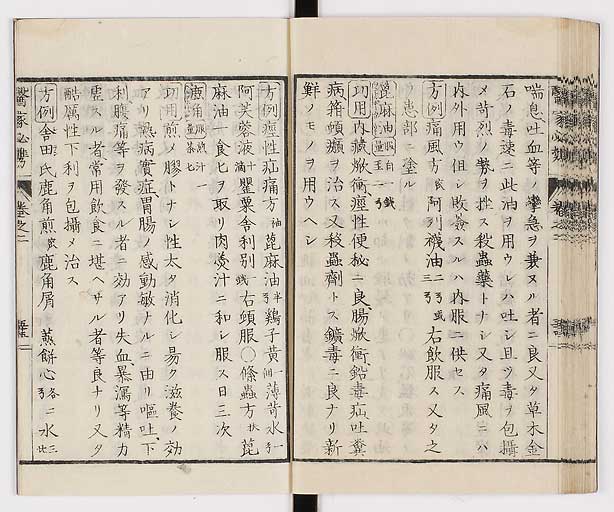 喘息吐血等ノ攣急ヲ兼ヌル者ニ良又タ草木金
石ノ毒速ニ此油ヲ用ウレハ吐シ且ツ毒ヲ包攝
メ苛烈ノ勢ヲ挫ス殺蟲藥トナシ又タ痛風ニハ
内外用ウ但シ敗敚スルハ内服ニ供セス
方例 痛風方 阿列襪油 右飲服ス又タ之
ヲ患部ニ塗ル
蓖麻油
功用 内臓焮衝痙性便秘ニ良腸焮衝鉛毒疝吐糞
病箝頓癲ヲ治ス又殺蟲劑トス鑛毒ニ良ナリ新
鮮ノモノヲ用ウヘシ
方例 痙性疝痛方 蓖麻油 半 鷄子黄 一箇 薄荷水 一
阿芙蓉液 十滴 罌粟舎利別 右頓服〇條蟲方 蓖
麻油一食匕ヲ取リ肉羹汁ニ和シ服ス日三次
鹿角
功用 煎メ膠トナシ性太タ消化シ易ク滋養ノ効
アリ熱病實症胃腸ノ感動敏ナルニ由リ嘔吐下
利腹痛等ヲ發スル者ニ効アリ失血暴瀉等精力
虚スル者常用飲食ニ堪ヘサル者等良ナリ又タ
酷厲性下利ヲ包攝メ治ス
方例 舎田氏鹿角煎 鹿角屑 蒸餅心 各二 水
醫家必攜 卷之二